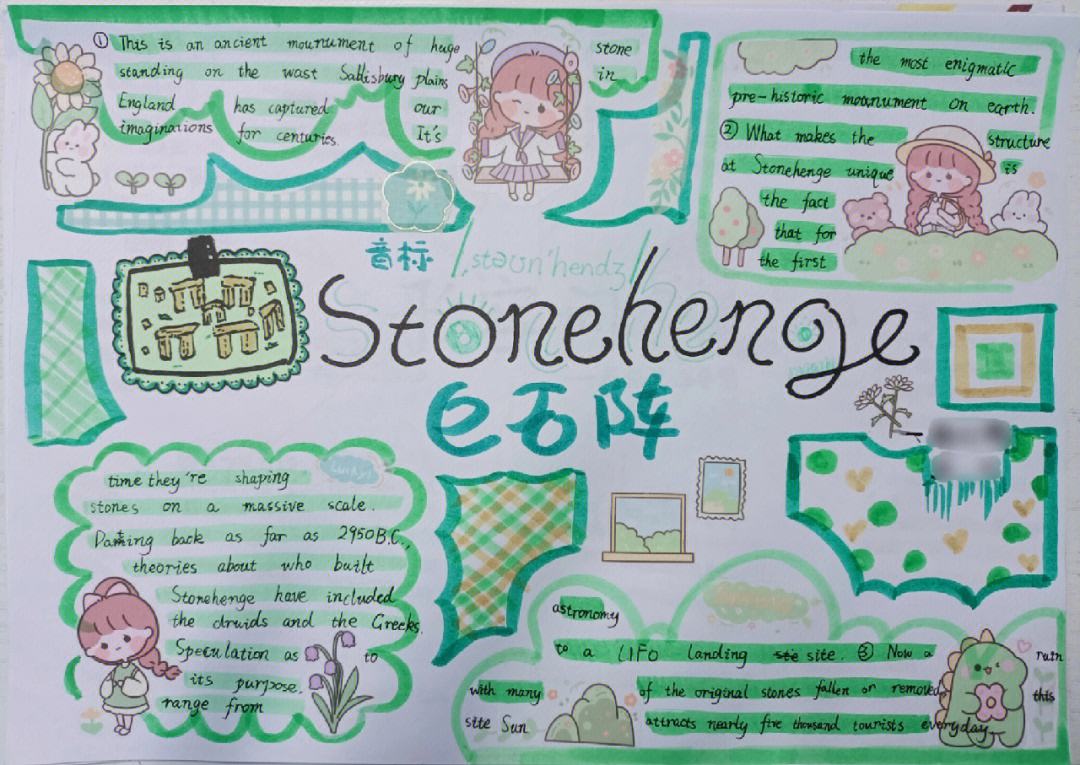 ① This is an ancient mounument of huge stone
standing on the wast Sallisbury plains in
England has captured our
imaginations for centuries. It's
the most enigmatic
pre-historic mounument on earth.
② What makes the structure
at Stonehenge unique is
the fact
that for
the first
音标 /ˌstəʊn'hendʒ/
Stonehenge
巨石阵
time they're shaping
stones on a massive scale.
Dating back as far as 2950B.C.,
theories about who built
Stonehenge have included
the druids and the Greeks.
Speculation as to
its purpose.
range from
astronomy
to a UFO landing site. ③ Now a ruin
with many of the original stones fallen or removed, this
site Sun attracts nearly five thousand tourists everyday.